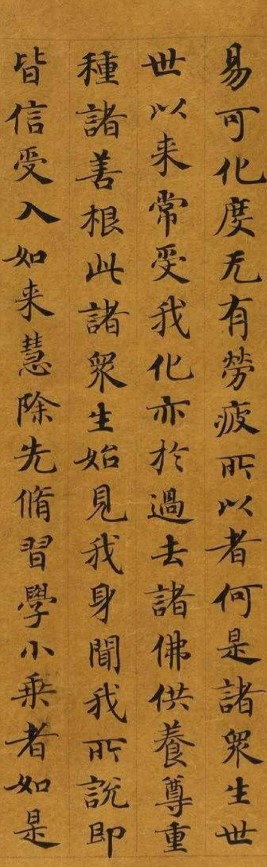 易可化度无有勞疲所以者何是諸衆生世
世以来常受我化亦於過去諸佛供養尊重
種諸善根此諸衆生始見我身聞我所說即
皆信受入如来慧除先脩習學小乗者如是